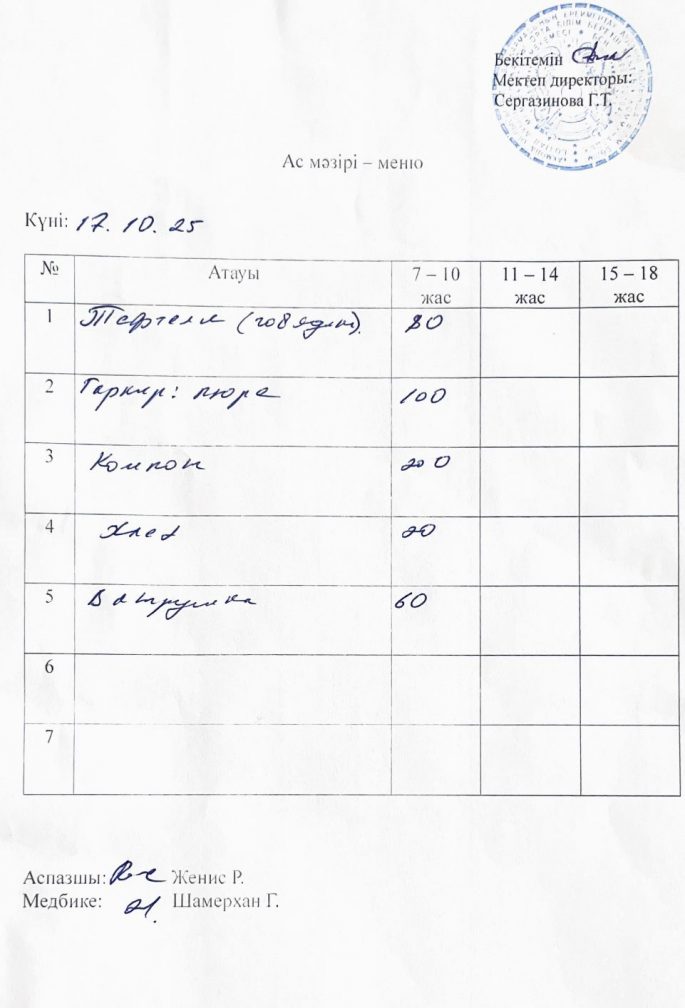 Бекітемін
Мектеп директоры:
Сергазинова Г.Т.
Ас мәзірі – меню
Күні: 17. 10. 25
№ Атауы 7 – 10 жас 11 – 14 жас 15 – 18 жас
1 Тефтели (говядин). 80
2 Гарнир: пюре 100
3 Компот 200
4 Хлеб 20
5 Ватрушка 60
6
7
Аспазшы: Женис Р.
Медбике: Шамерхан Г.